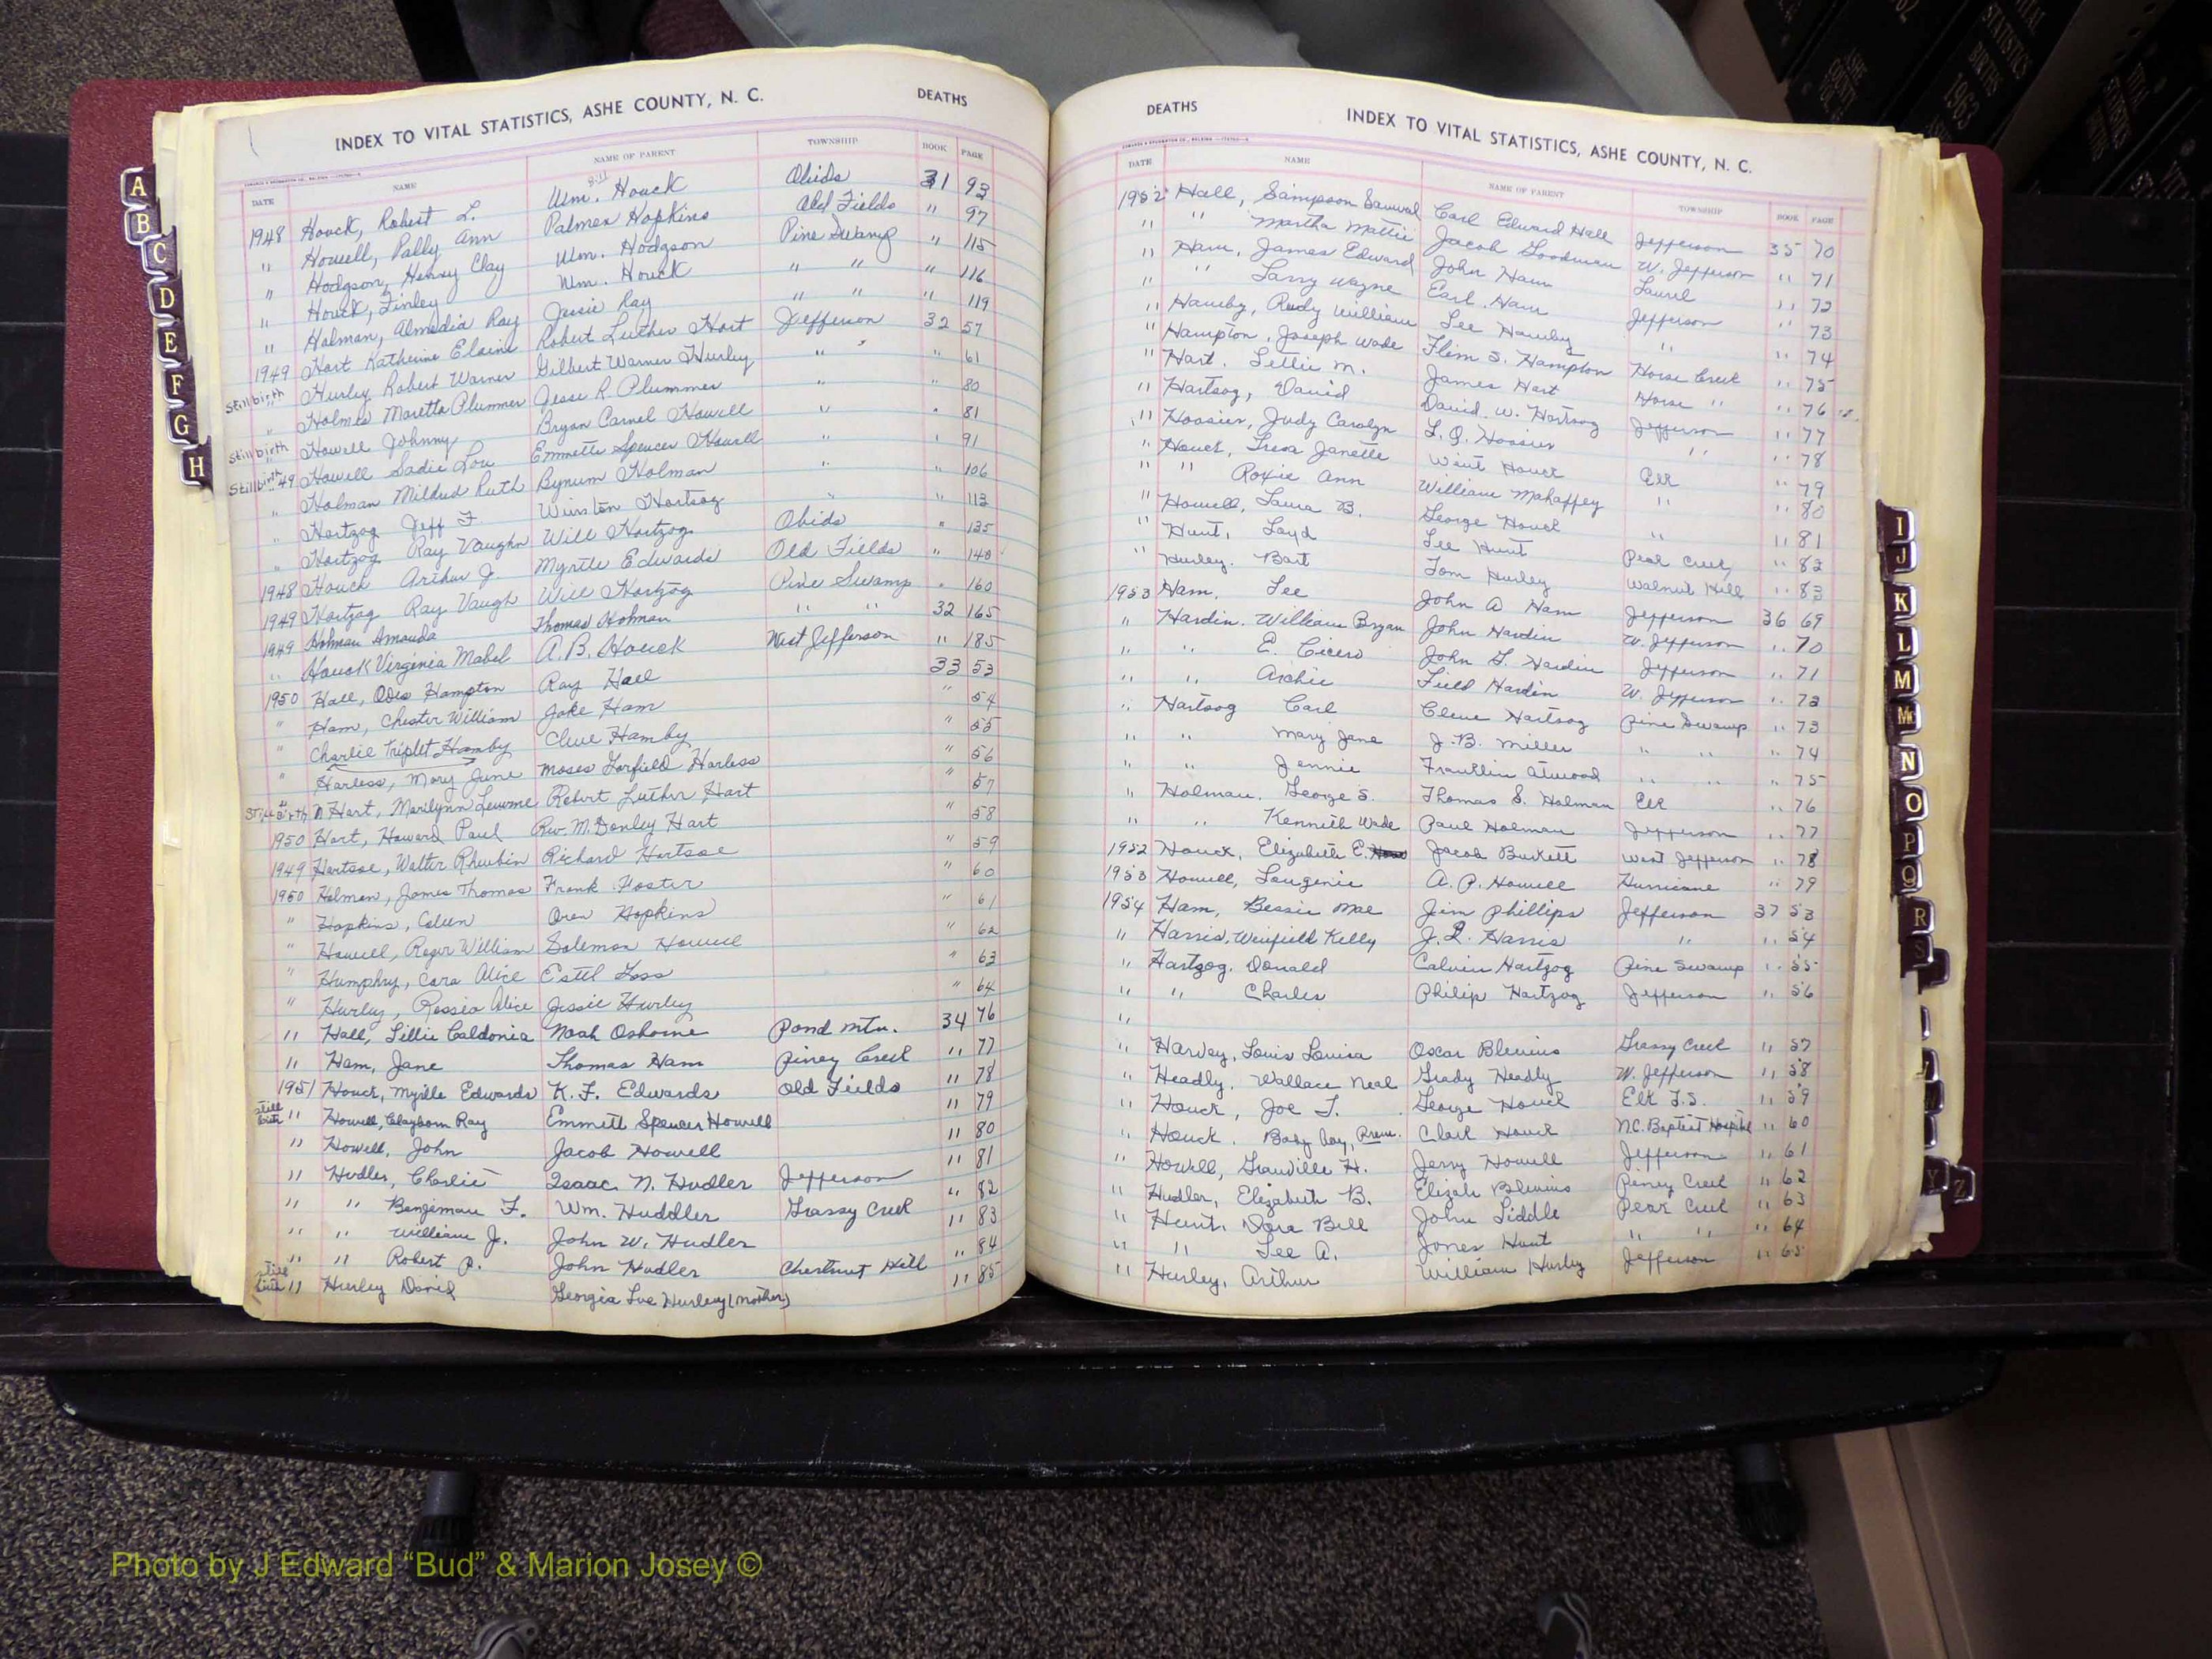 INDEX TO VITAL STATISTICS, ASHE COUNTY, N. C. DEATHS
DATE NAME NAME OF PARENT TOWNSHIP BOOK PAGE
1948 Houck, Robert L. Wm. Houck Obids 31 93
" Howell, Pally Ann Palmer Hopkins Old Fields " 97
" Hodgson, Henry Clay Wm. Hodgson Pine Swamp " 115
" Houck, Finley Wm. Houck " " " 116
" Holman, Almedia Ray Jessie Ray " " " 119
1949 Hart Katherine Elaine Robert Luther Hart Jefferson 32 57
Stillbirth " Hurley Robert Warner Gilbert Warner Hurley " " 61
" Holmes Maretta Plummer Jesse R. Plummer " " 80
Stillbirth " Howell Johnny Bryan Carnel Howell " " 81
Stillbirth 49 Howell Sadie Lou Emmette Spencer Howell " " 91
" Holman Mildred Ruth Bynum Holman " " 106
" Hartzog Jeff F. Winston Hartsog " " 113
" Hartzog Ray Vaughn Will Hartzog Obids " 135
1948 Houck Arthur J. Myrtle Edwards Old Fields " 140
1949 Hartzog Ray Vaugh Will Hartzog Pine Swamp " 160
1949 Holman Amanda Thomas Holman " " 32 165
" Houck Virginia Mabel A. B. Houck West Jefferson " 185
1950 Hall, Odis Hampton Ray Hall 33 53
" Ham, Chester William Jake Ham " 54
" Charlie Triplet Hamby Clive Hamby " 55
" Harless, Mary June Moses Garfield Harless " 56
Still Birth " Hart, Marilynn Robert Luther Hart " 57
1950 Hart, Howard Paul Rev. M. Donley Hart " 58
1949 Hartsoe, Walter Rheubin Richard Hartsoe " 59
1950 Holman, James Thomas Frank Foster " 60
" Hopkins, Coleen Oren Hopkins " 61
" Howell, Roger William Soleman Howell " 62
" Humphry, Cora Alice Estel Goss " 63
" Hurley, Rossie Alice Jessie Hurley " 64
" Hall, Lillie Caldonia Noah Osborne Pond Mtn. 34 76
" Ham, Jane Thomas Ham Piney Creek " 77
1951 Houck, Myrtle Edwards K. F. Edwards Old Fields " 78
still birth " Howell, Clayborn Ray Emmitt Spencer Howell " 79
" Howell, John Jacob Howell " 80
" Hudler, Charlie Isaac N. Hudler Jefferson " 81
" " Benjeman F. Wm. Huddler Grassy Creek " 82
" " William J. John W. Hudler " 83
" " Robert P. John Hudler Chestnut Hill " 84
still birth " Hurley David Georgia Lue Hurley (mother) " 85
DEATHS INDEX TO VITAL STATISTICS, ASHE COUNTY, N. C.
DATE NAME NAME OF PARENT TOWNSHIP BOOK PAGE
1952 Hall, Sampson Samual Carl Edward Hall Jefferson 35 70
" " Martha Mattie Jacob Goodman W. Jefferson " 71
" Ham, James Edward John Ham Laurel " 72
" " Larry Wayne Earl Ham Jefferson " 73
" Hamby, Rudy William Lee Hamby " " 74
" Hampton, Joseph Wade Flim S. Hampton Horse Creek " 75
" Hart, Lettie M. James Hart Horse " " 76
" Hartsog, David David W. Hartsog Jefferson " 77
" Hoosier, Judy Carolyn L. Q. Hoosier " " 78
" Houck, Tresa Janette Went Houck Elk " 79
" " Roxie Ann William Mahaffey " " 80
" Howell, Laura B. George Houck " " 81
" Hunt, Loyd Lee Hunt Peak Creek " 82
" Hurley, Bart Tom Hurley Walnut Hill " 83
1953 Ham, Lee John A Ham Jefferson 36 69
" Hardin, William Bryan John Hardin W. Jefferson " 70
" " E. Cicero John F. Hardin Jefferson " 71
" " Archie Field Hardin W. Jefferson " 72
" Hartsog Carl Cleve Hartsog Pine Swamp " 73
" " Mary Jane J. B. Miller " " " 74
" " Jennie Franklin Atwood " " " 75
" Holman, George S. Thomas S. Holman Elk " 76
" " Kenneth Wade Paul Holman Jefferson " 77
1952 Houck, Elizabeth E. Jacob Burkett West Jefferson " 78
1953 Howell, Laugenie A. P. Howell Hurricane " 79
1954 Ham, Bessie Mae Jim Phillips Jefferson 37 53
" Harris, Winfield Kelly J. R. Harris " " 54
" Hartzog, Donald Calvin Hartzog Pine Swamp " 55
" " Charles Philip Hartzog Jefferson " 56
"
" Harvey, Louis Louisa Oscar Blevins Grassy Creek " 57
" Headly, Wallace Neal Grady Headly W. Jefferson " 58
" Houck, Joe T. George Houck Elk T.S. " 59
" Houck, Baby Boy, Prem. Clark Houck N.C. Baptist Hospital " 60
" Howell, Granville H. Jerry Howell Jefferson " 61
" Hudler, Elizabeth B. Elizah Blevins Piney Creek " 62
" Hunt, Dora Bell John Liddle Peak Creek " 63
" " Lee A. Jones Hunt " " " 64
" Hurley, Arthur William Hurley Jefferson " 65
A
B
C
D
E
F
G
H
I
J
K
L
M
Mc
N
O
P
Q
R
S
Y
Z
VITAL STATISTICS BIRTHS 1963
ASHE COUNTY
Photo by J Edward “Bud” & Marion Josey ©